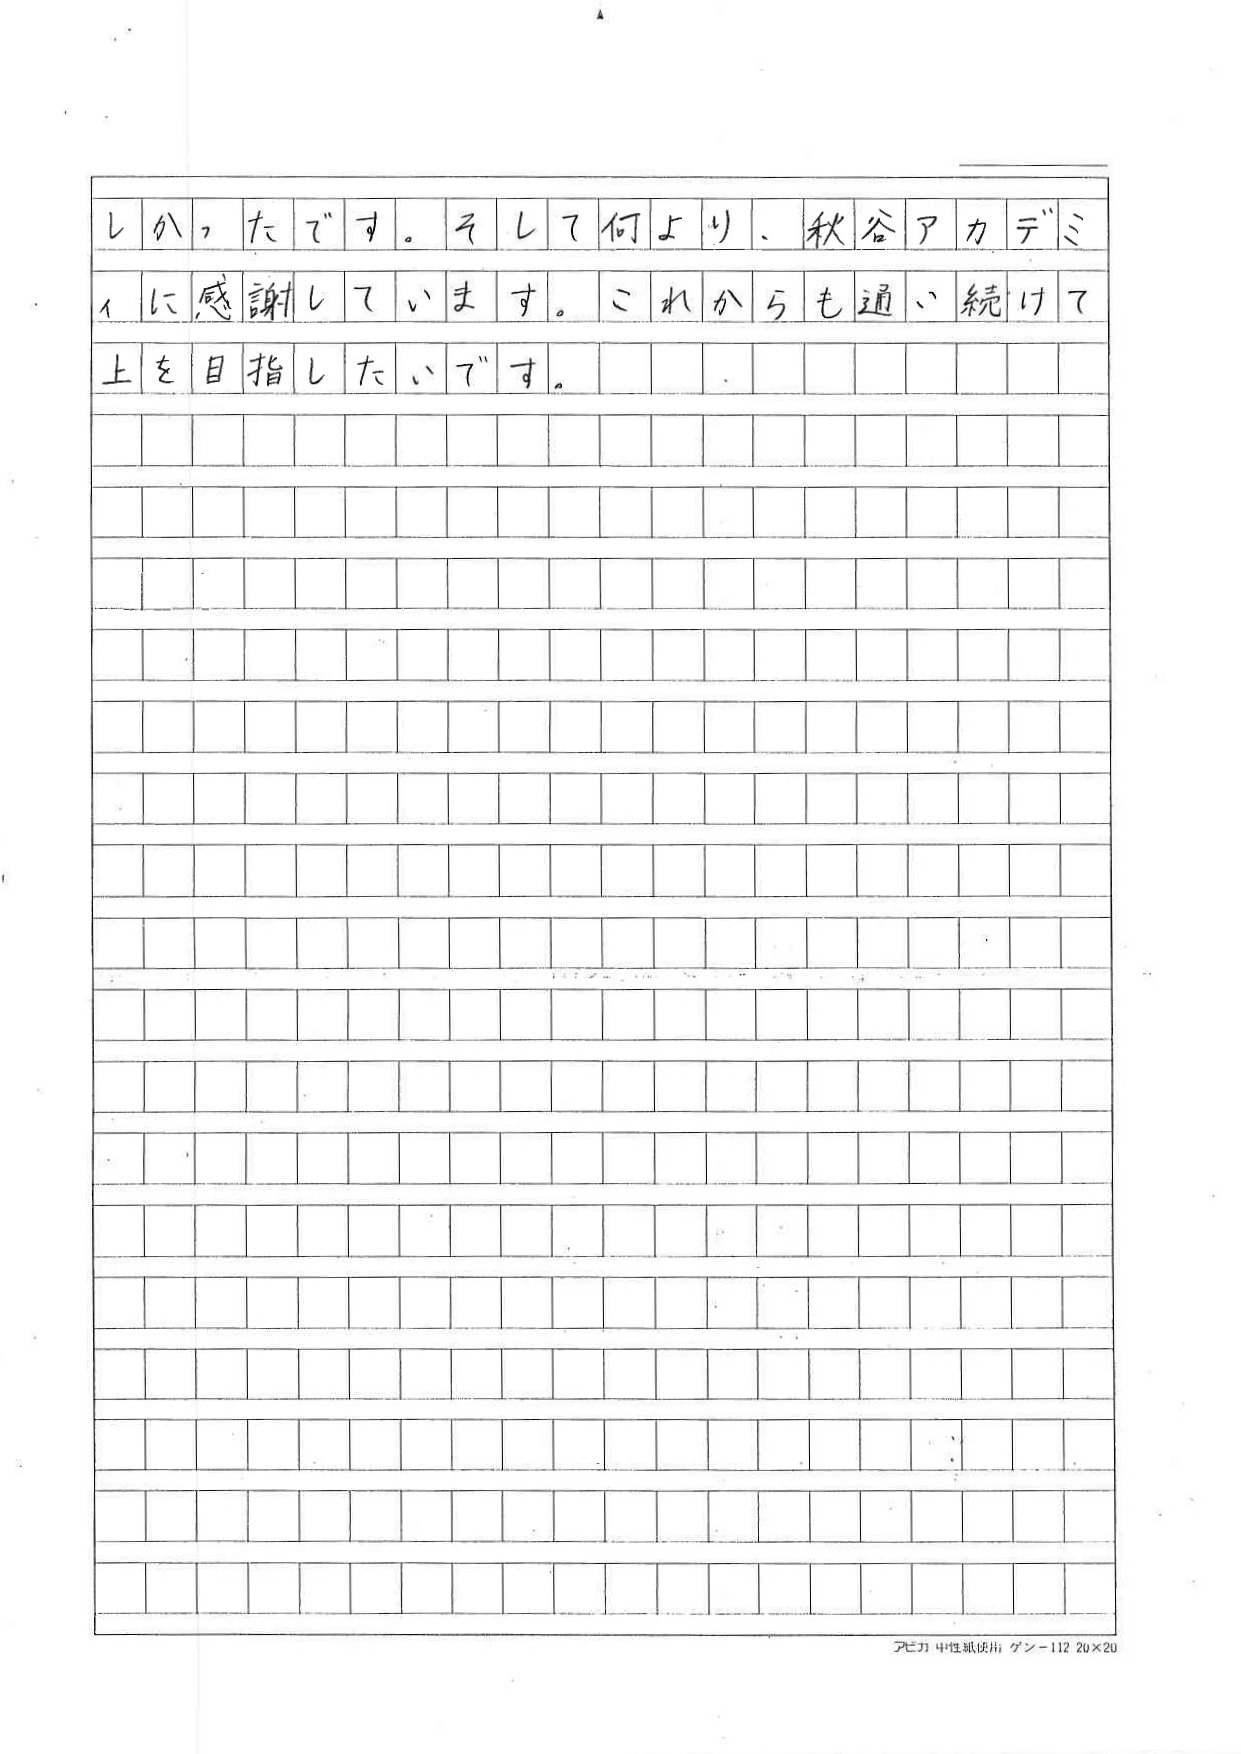 しかったです。そして何より、秋谷アカデミ
ィに感謝しています。これからも通い続けて
上を目指したいです。
アピカ 中性紙使用 ゲンー112 20×20